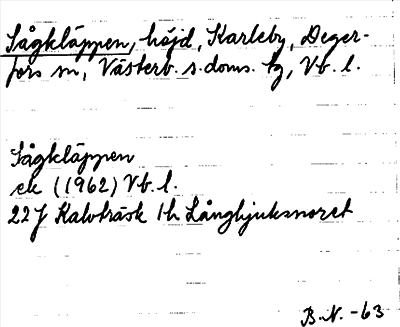 Sågkläppen, höjd, Karleby, Deger-
fors sn, Västerb. s. doms. tg, Vb. l.
Sågkläppen
ek (1962) Vb. l.
22J Kalvträsk 1h Långhjuksnoret
B.N. -63